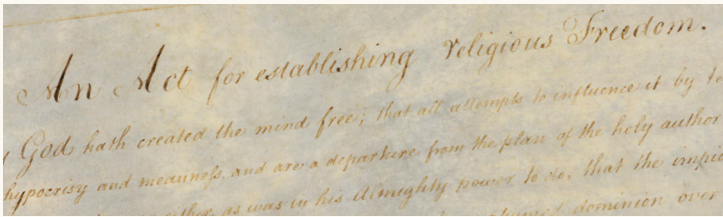 An Act for establishing religious Freedom.
God hath created the mind free; that all attempts to influence it by te
hypocrisy and meanness, and are a departure from the plan of the holy author
as was in his Almighty power to do, that the impio
dominion over